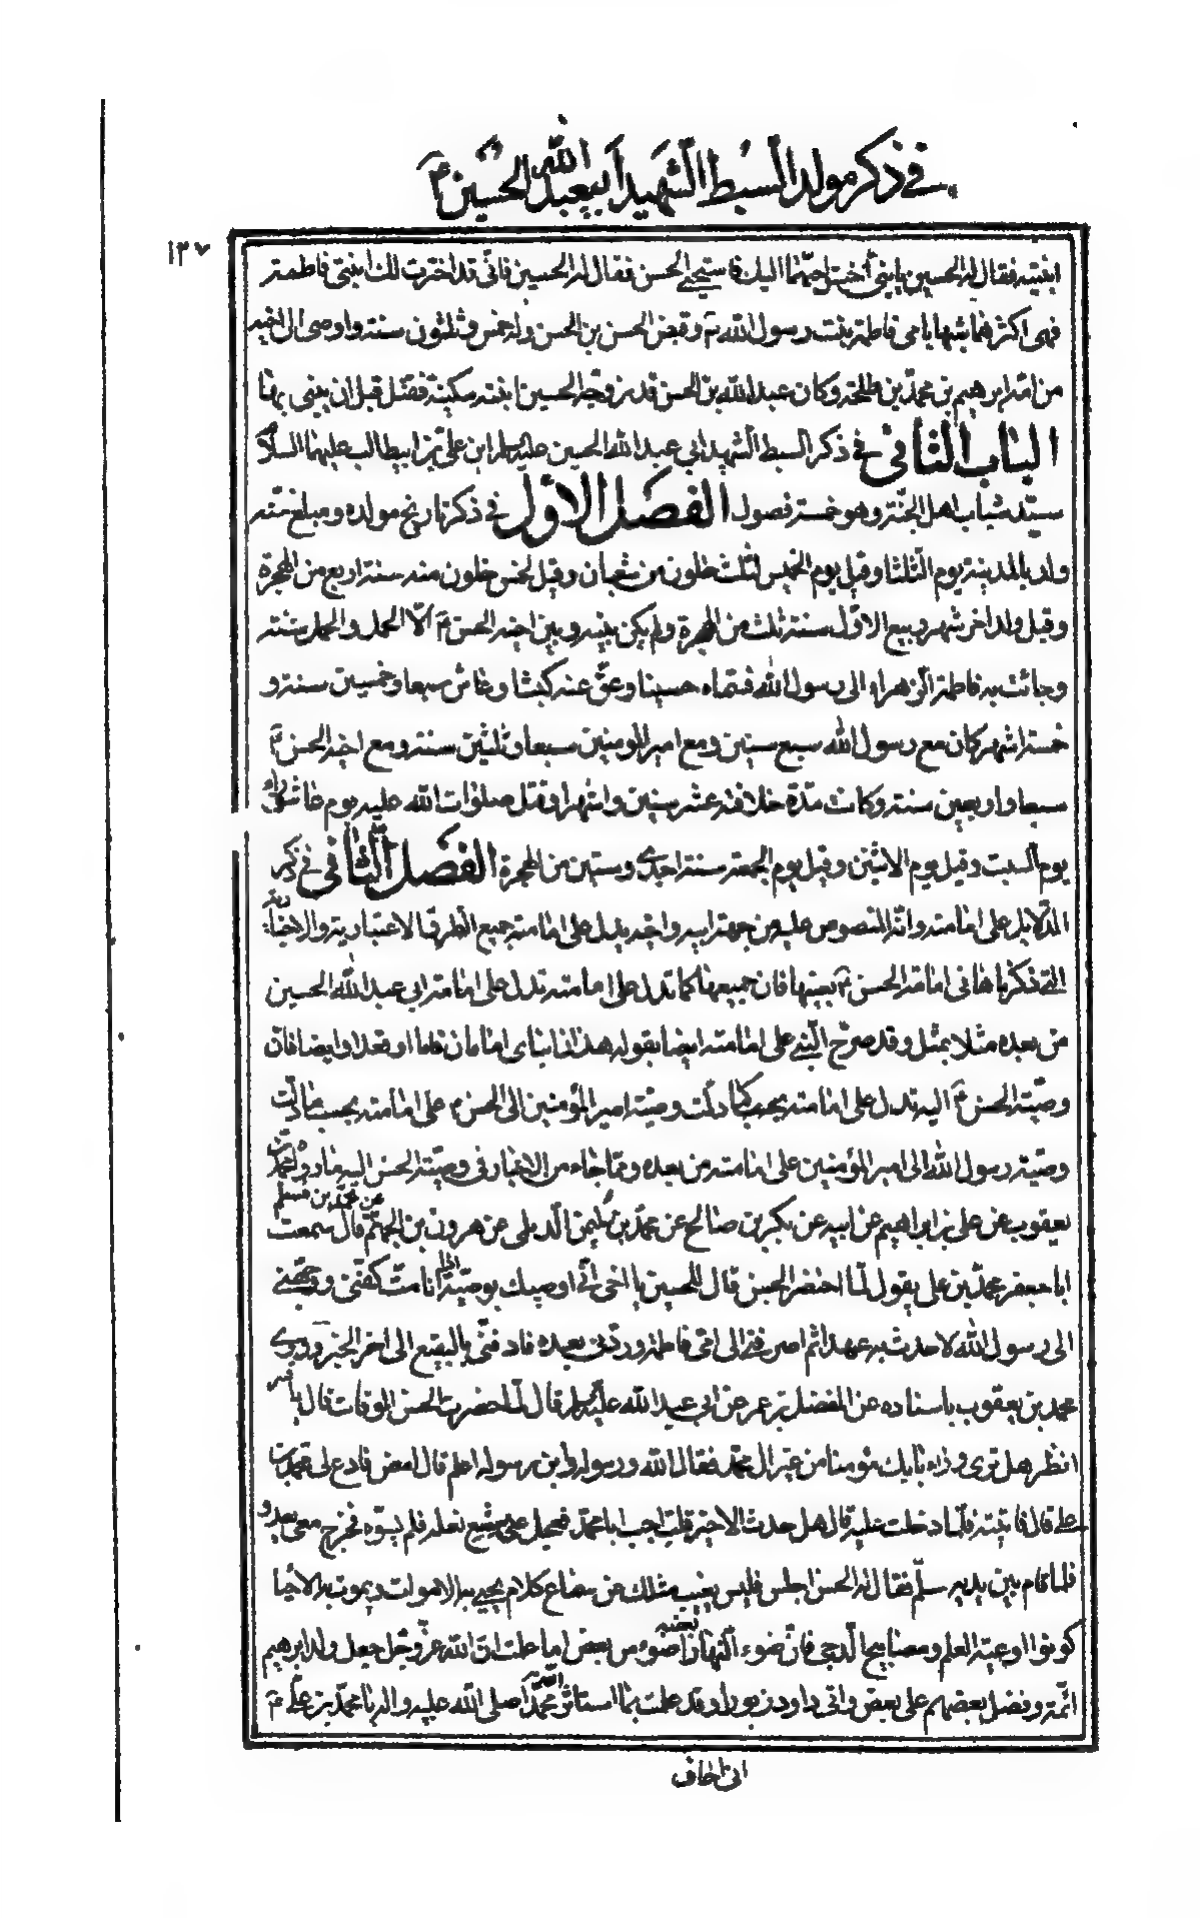 في ذكر مولد السبط الشهيد ابيعبد الله الحسين ع
١٢٧
ابنتيه فقال له الحسين يا بني اختر احبّهما اليك فاستحيى الحسن فقال له الحسين فانّي قد اخترت لك ابنتي فاطمة
فهي اكثرهما شبها بامي فاطمة بنت رسول الله ص وقبض الحسن بن الحسن وله خمس وثلثون سنة واوصى الى اخيه
من امه ابرهيم بن محمّد بن طلحة وكان عبد الله بن الحسن قد زوّجه الحسين ابنته سكينة فقتل قبل ان يبني بها
الباب الثاني في ذكر السبط الشهيد ابي عبد الله الحسين عليه السلم ابن علي بن ابيطالب عليهما السلام
سيّد شباب اهل الجنّة وهو خمسة فصول الفصل الاول في ذكر تاريخ مولده ومبلغ سنّه
ولد بالمدينة يوم الثلثا وقيل يوم الخميس لثلث خلون من شعبان وقيل لخمس خلون منه سنة اربع من الهجرة
وقيل ولد اخر شهر ربيع الاوّل سنة ثلث من الهجرة ولم يكن بينه وبين اخيه الحسن ع الّا الحمل والحمل ستة
وجائت به فاطمة الزهراء الى رسول الله فسمّاه حسينا وعقّ عنه كبشا وعاش سبعا وخمسين سنة و
خمسة اشهر كان مع رسول الله سبع سنين ومع امير المؤمنين سبعا وثلثين سنة ومع اخيه الحسن ع
سبعا واربعين سنة وكانت مدّة خلافته عشر سنين واشهرا وقتل صلوات الله عليه يوم عاشوراء
يوم السبت وقيل يوم الاثنين وقيل يوم الجمعة سنة احدى وستين من الهجرة الفصل الثاني في ذكر
الدّلايل على امامته وانّه المنصوص عليه من جهة ابيه واخيه يدل على امامته جميع الطرق الاعتبارية والاخبارية
التي ذكرناها في امامة الحسن ع بعينها فان جميعها كما تدل على امامته تدل على امامة ابي عبد الله الحسين
من بعده مثلا بمثل وقد صرّح النّبي على امامته ايضا بقوله هذان ابناي امامان قاما او قعدا وايضا فانّ
وصيّة الحسن ع اليه تدل على امامته بحسب كما دلّت وصيّة امير المؤمنين الى الحسن ع على امامته بحسب ما دلّت
وصيّة رسول الله الى امير المؤمنين على امامته من بعده وممّا جاء من الاخبار في وصيّة الحسن اليه ما رواه محمّد بن
يعقوب عن علي بن ابراهيم عن ابيه عن بكر بن صالح عن محمّد بن سليمن الدّيلمي عن هرون بن الجهم عن محمّد بن مسلم قال سمعت
ابا جعفر محمّد بن علي يقول لّما احتضر الحسن قال للحسين يا اخي انّي اوصيك بوصيّة اذا انا متّ كفّنّي ووجّهني
الى رسول الله لاحدث به عهدا ثم اصرفني الى امّي فاطمة ورّدني بعده فادفنّي بالبقيع الى اخر الخبر وروى
محمد بن يعقوب باسناده عن المفضل بن عمر عن ابي عبد الله عليه السلم قال لّما حضرت الحسن الوفات قال يا قنبر
انظر هل ترى وراء بابك مؤمنا من غير ال محمّد فقال الله ورسوله وابن رسوله اعلم قال امض فادع لي محمّد بن
علي قال فاتيته فلّما دخلت عليه قال هل حدث الا خير قلت اجب ابا محمّد فعجل عن شسع نعله فلم يسوّه فخرج معي يعدو
فلما قام بين يديه سلّم فقال له الحسن اجلس فليس يغيب مثلك عن سماع كلام يحيى به الاموات ويموت به الاحيا
كونوا اوعية العلم ومصابيح الّدجى فانّ ضوء النّهار بعضه اضوء من بعض اما علمت ان الله عزّ وجلّ جعل ولد ابرهيم
ائمّة وفضل بعضهم على بعض واتى داود زبورا وقد علمت بما استاثر الله محمّدا صلى الله عليه واله يا محمّد بن علي ع
انى اخاف